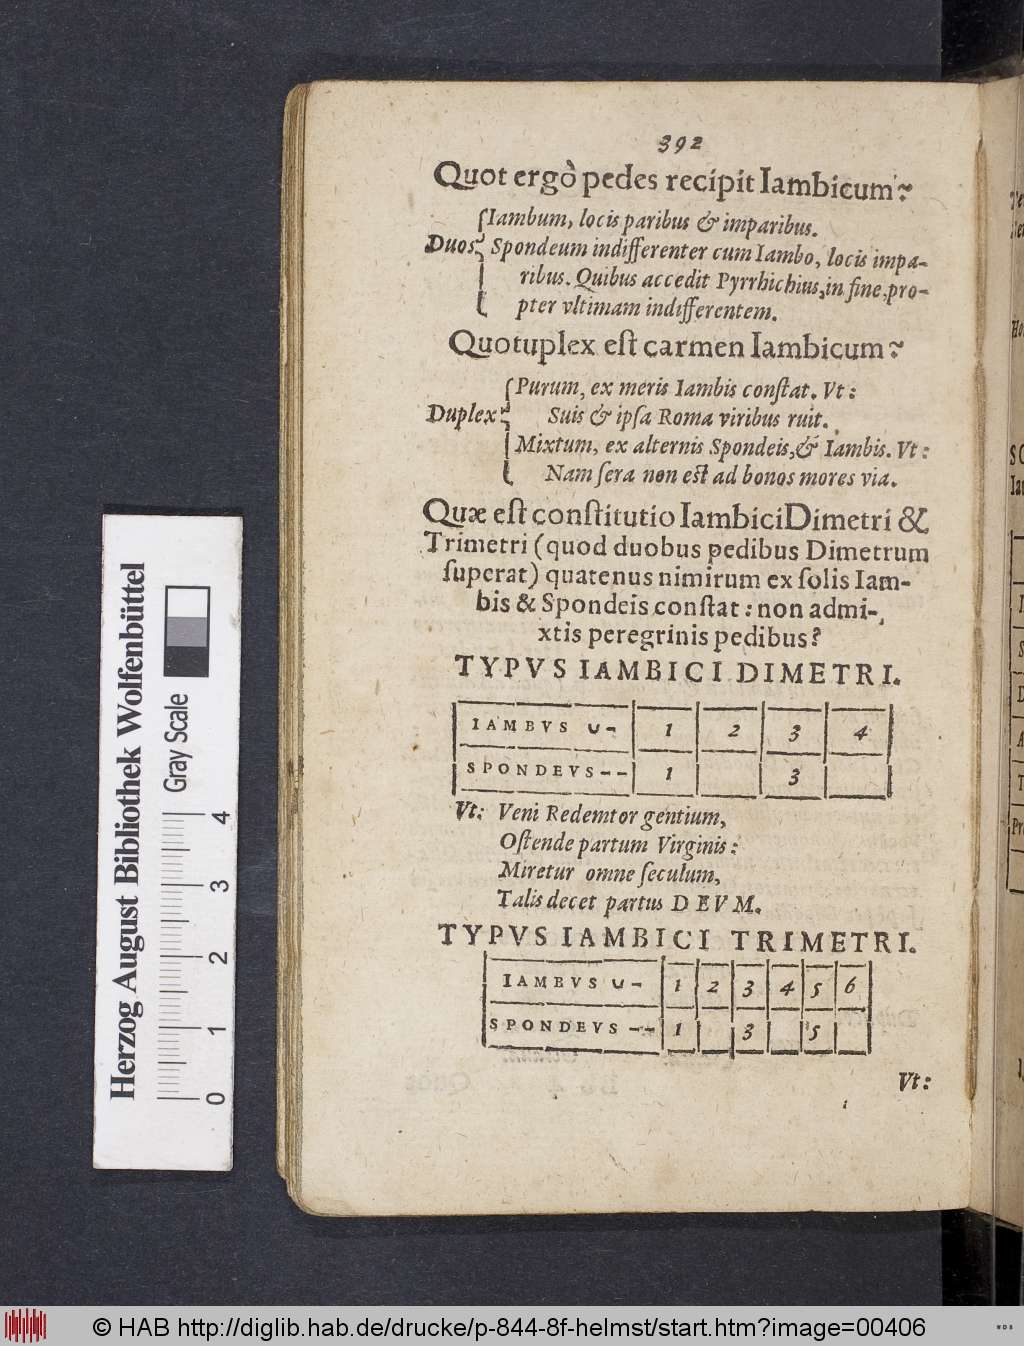 392
Quot ergò pedes recipit Iambicum?
Iambum, locis paribus & imparibus.
Duos Spondeum indifferenter cum Iambo, locis impa-
ribus. Quibus accedit Pyrrhichius, in fine, pro-
pter vltimam indifferentem.
Quotuplex eſt carmen Iambicum?
Purum, ex meris Iambis conſtat. Vt:
Duplex Suis & ipſa Roma viribus ruit.
Mixtum, ex alternis Spondeis, & Iambis. Vt:
Nam ſera non eſt ad bonos mores via.
Quæ eſt conſtitutio Iambici Dimetri &
Trimetri (quod duobus pedibus Dimetrum
ſuperat) quatenus nimirum ex ſolis Iam-
bis & Spondeis conſtat: non admi-
xtis peregrinis pedibus?
TYPVS IAMBICI DIMETRI.
IAMBVS ∪- 1 2 3 4
SPONDEVS-- 1 3
Vt: Veni Redemtor gentium,
Oſtende partum Virginis:
Miretur omne ſeculum,
Talis decet partus DEVM.
TYPVS IAMBICI TRIMETRI.
IAMBVS ∪- 1 2 3 4 5 6
SPONDEVS -- 1 3 5
Vt:
Herzog August Bibliothek Wolfenbüttel
Gray Scale
0 1 2 3 4
© HAB http://diglib.hab.de/drucke/p-844-8f-helmst/start.htm?image=00406